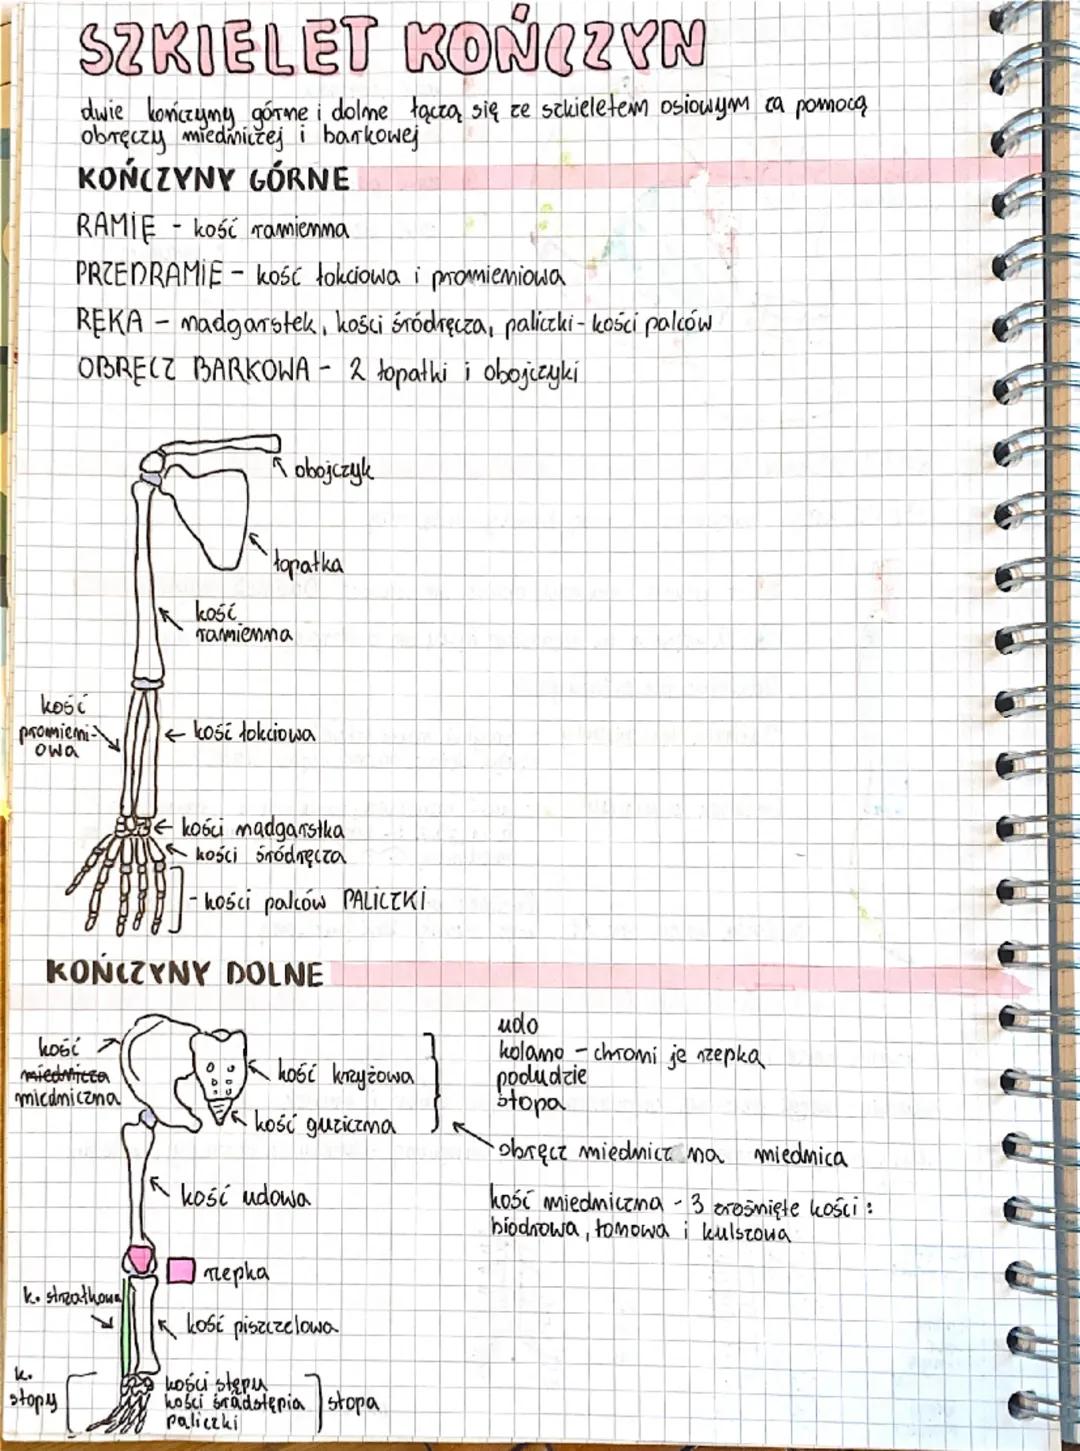 SZKIELET KOŃCZYN
dwie kończyny górne i dolne łączą się ze szkieletem osiowym za pomocą
obręczy miedniczej i barkowej
KOŃCZYNY GÓRNE
RAMIĘ - kość ramienna
PRZEDRAMIĘ - kość łokciowa i promieniowa
RĘKA - nadgarstek, kości śródręcza, paliczki - kości palców
OBRĘCZ BARKOWA - 2 łopatki i obojczyki
obojczyk
łopatka
kość
ramienna
kość
promieni-
owa
kość łokciowa
kości nadgarstka
kości śródręcza
- kości palców PALICZKI
KOŃCZYNY DOLNE
kość
miednicza
miedniczna
kość krzyżowa
kość guziczna
udo
kolano - chroni je rzepka
podudzie
stopa
obręcz miednicz na miednica
kość miedniczna - 3 zrośnięte kości:
biodrowa, łonowa i kulszowa
kość udowa
rzepka
k. strzałkowa
kość piszczelowa
k.
stopy
kości stępu
kości śródstępia
paliczki
stopa